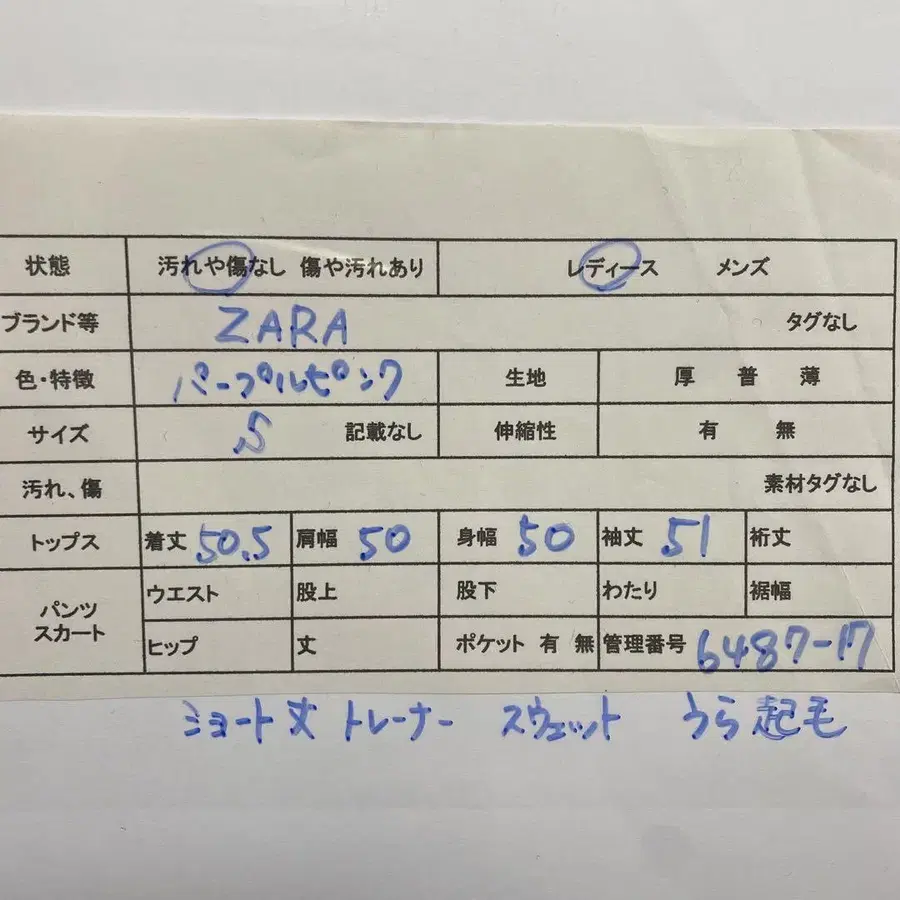 状態 汚れや傷なし 傷や汚れあり レディース メンズ
ブランド等 ZARA タグなし
色・特徴 パープルピンク 生地 厚 普 薄
サイズ S 記載なし 伸縮性 有 無
汚れ、傷 素材タグなし
トップス 着丈 50.5 肩幅 50 身幅 50 袖丈 51 裄丈
パンツ スカート ウエスト 股上 股下 わたり 裾幅
ヒップ 丈 ポケット 有 無 管理番号 6487-17
ショート丈 トレーナー スウェット うら起毛